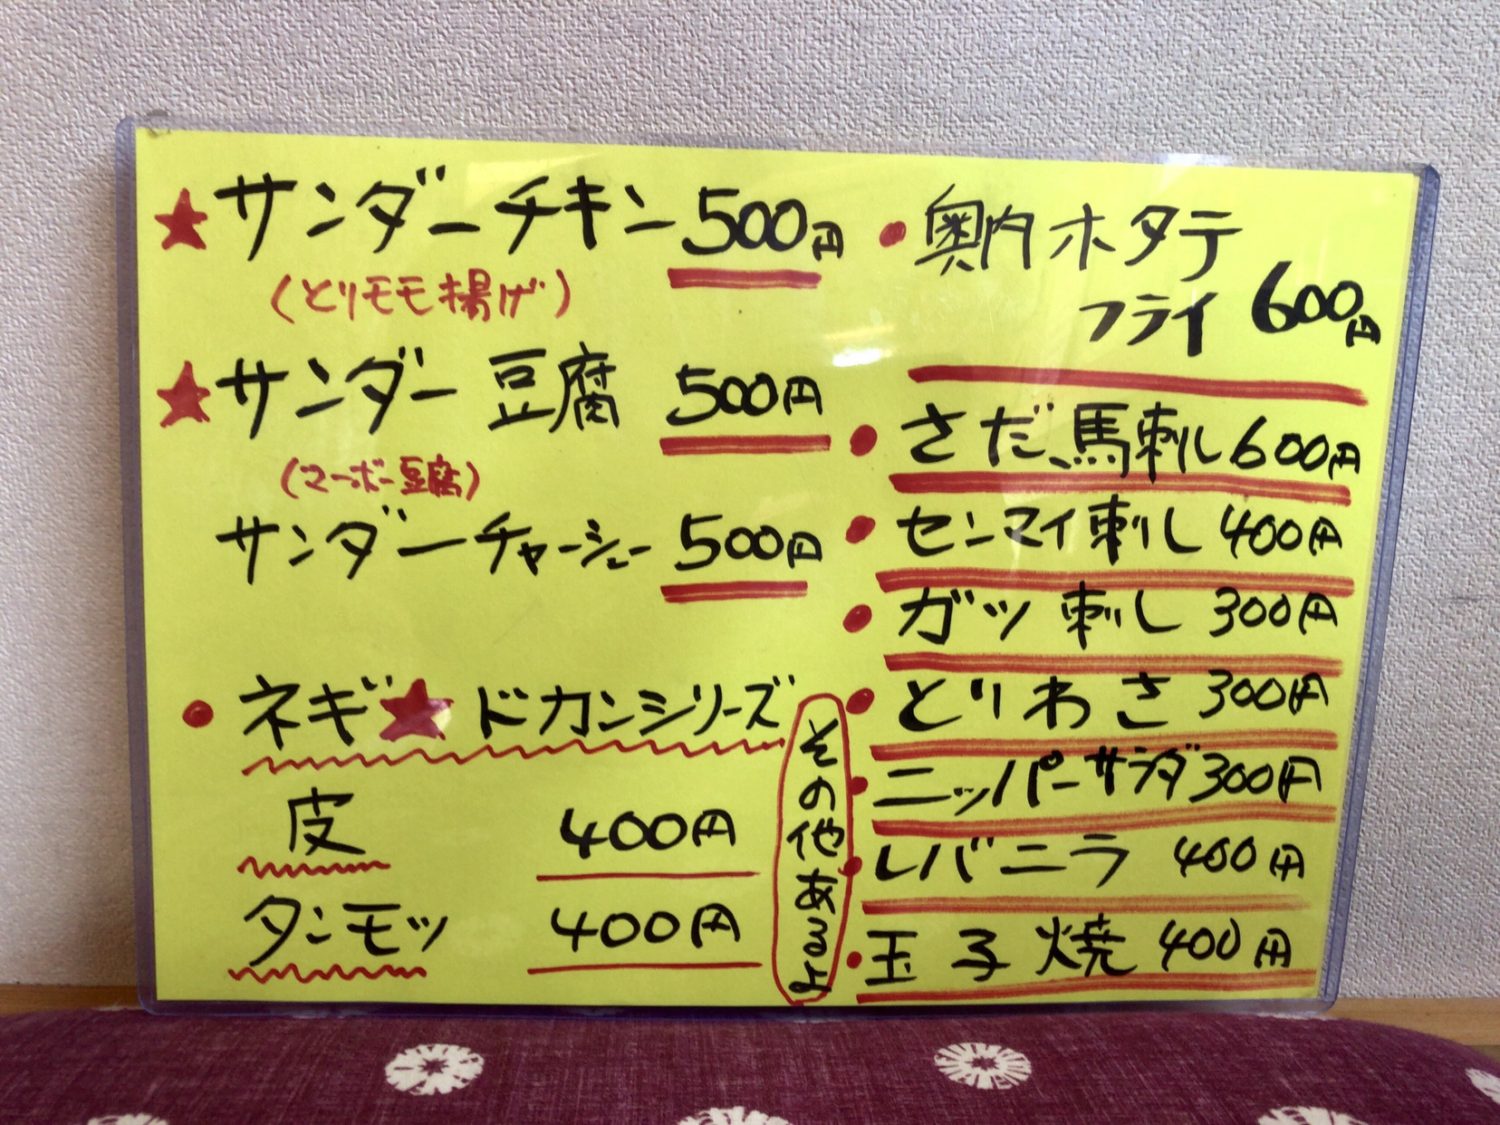 ★サンダーチキン 500円
(とりモモ揚げ)
★サンダー豆腐 500円
(マーボー豆腐)
サンダーチャーシュー 500円
●ネギ★ドカンシリーズ
皮 400円
タンモツ 400円
その他あるよ
●奥内ホタテ
フライ 600円
●さだ、馬刺し 600円
●センマイ刺し 400円
●ガツ刺し 300円
●とりわさ 300円
●ニッパーサラダ 300円
●レバニラ 400円
●玉子焼 400円